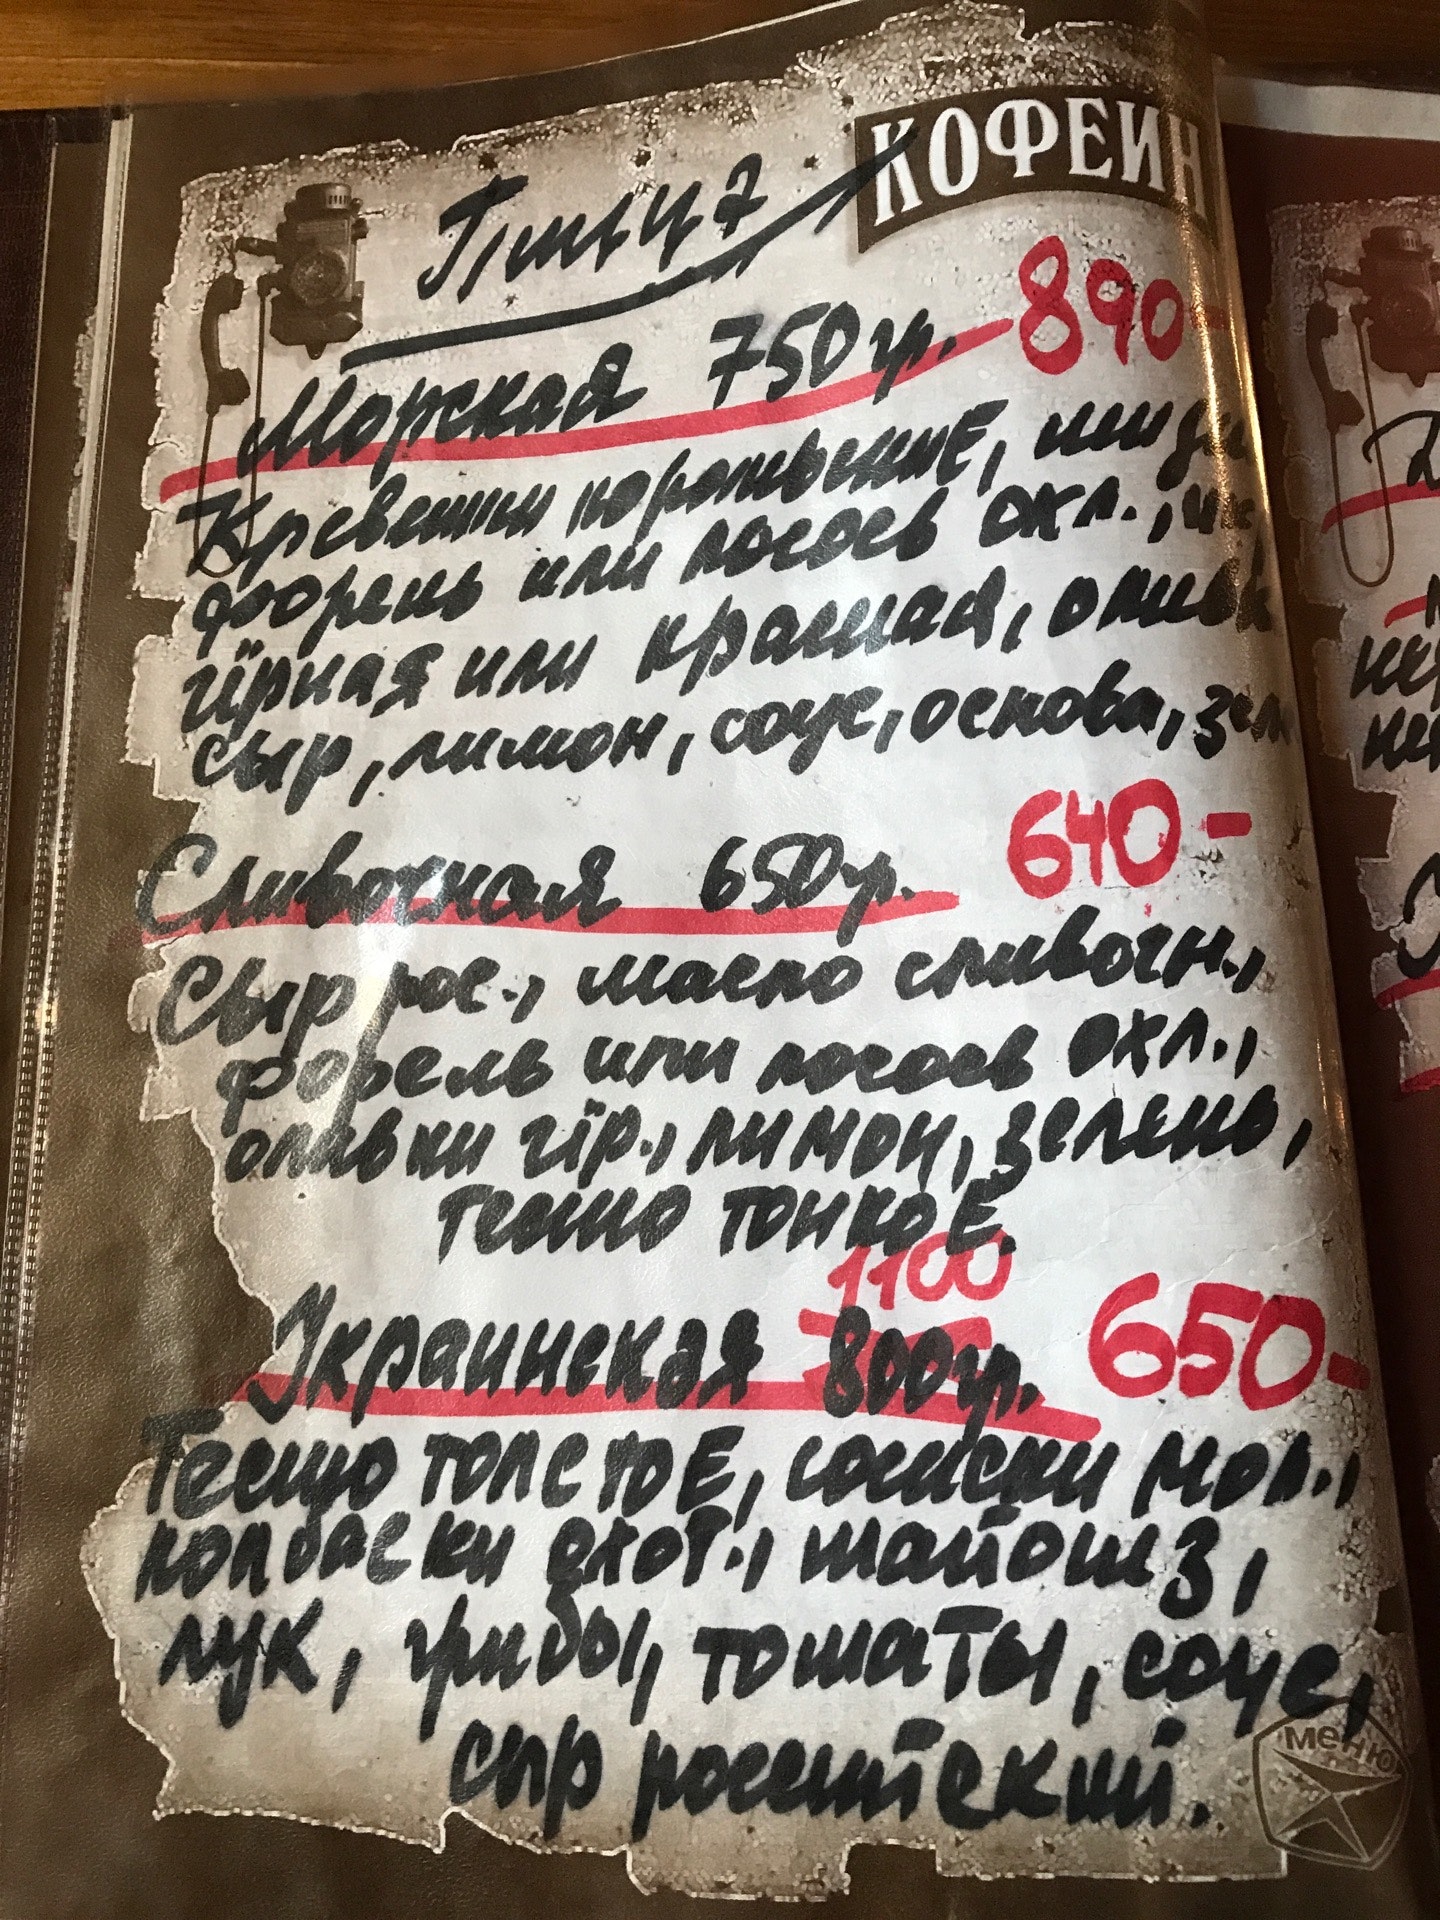 КОФЕИН
Пицца
Морская 750гр. 890-
Креветки королевские, мидии
форель или лосось охл., ик
чёрная или красная, оливк
сыр, лимон, соус, основа, зел
Сливочная 650гр. 640-
Сыр рос., масло сливочн.,
форель или лосось охл.,
оливки чёр., лимон, зелень,
тесто тонкоЕ.
1100
Украинская 800гр. 650-
Тесто толстоЕ, сосиски мол.,
колбаски охот., майонез,
лук, грибы, томаты, соус,
сыр российский.
меню